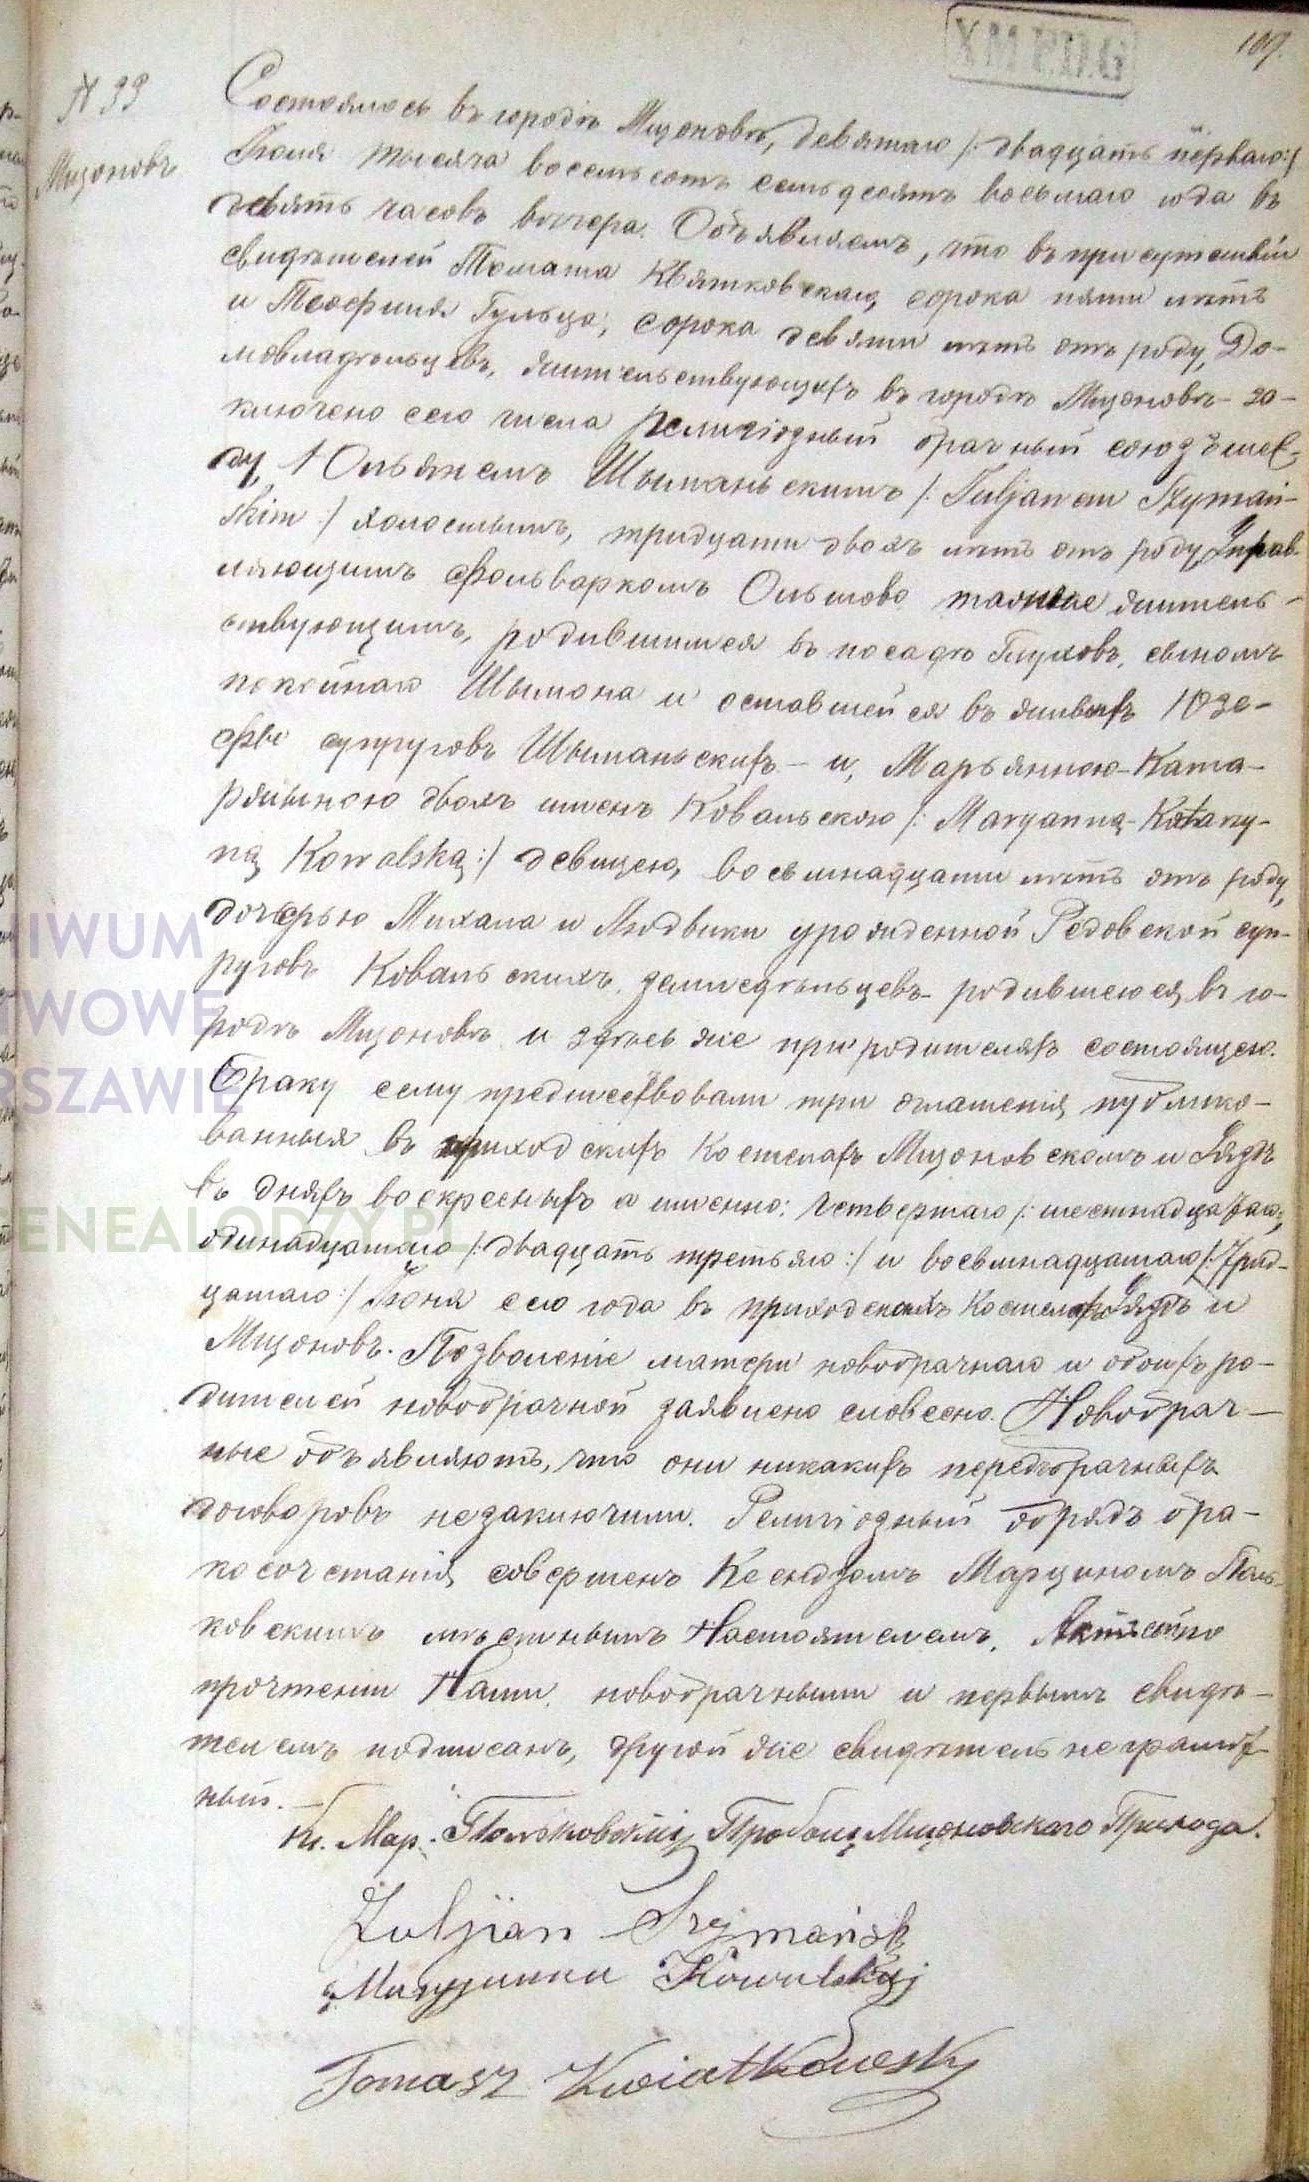 109.
N 99
Мщоновъ
Состоялось въ городѣ Мщоновѣ, девятаго /: двадцать перваго :/
Іюля тысяча восемьсотъ семьдесятъ восьмаго года въ
девять часовъ вечера. Объявляемъ, что въ присутствіи
свидѣтелей Томаша Квятковскаго, сорока пяти лѣтъ
и Теофиля Гульца, сорока девяти лѣтъ отъ роду, До-
мовладѣльцевъ, жительствующихъ въ городѣ Мщоновѣ - за-
ключено сего числа религіозный брачный союзъ меж-
ду, Юльянемъ Шыманьскимъ /: Juljanem Szymań-
skim :/ холостымъ, тридцати двохъ лѣтъ отъ роду, Управ-
ляющимъ Фольваркомъ Ольшово тамже житель-
ствующимъ, родившимся въ посадѣ Глуховъ, сыномъ
покойнаго Шымона и оставшейся въ живыхъ Юзе-
фы супруговъ Шыманьскихъ - и, Марьянною-Ката-
ржыною двохъ именъ Ковальскою /: Maryanną-Katarzy-
ną Kowalską :/ девицею, восьмнадцати лѣтъ отъ роду,
дочерью Михала и Людвики урожденной Редовской суп-
руговъ Ковальскихъ земледѣльцевъ родившеюся въ го-
родѣ Мщоновѣ и здѣсь же при родителяхъ состоящею.
Браку сему предшествовали три оглашенія, публико-
ванныя въ приходскихъ Костелахъ Мщоновскомъ и
въ дняхъ воскресныхъ а именно: четвертаго /: шестнадцатаго,
одинадцатаго /: двадцать третьяго :/ и восьмнадцатаго /: трид-
цатаго :/ Іюня сего года въ приходскихъ Костелахъ и
Мщоновъ. Позволеніе матери новобрачнаго и обоихъ ро-
дителей новобрачной заявлено словесно. Новобрач-
ные объявляютъ, что они никакихъ передбрачныхъ
договоровъ незаключили. Религіозный обрядъ бра-
косочетанія, совершенъ Ксендзомъ Марциномъ
ковскимъ мѣстнымъ Настоятелемъ. Актъ сей по
прочтеніи Нами, новобрачными и первымъ свидѣ-
телемъ подписанъ, другой же свидѣтель неграмот-
ный. -
Кс. Мар. Пробощ Мщоновскаго Прихода.
Juljian Szymański
Maryjanna Kowalskij
Tomasz Kwiatkowski